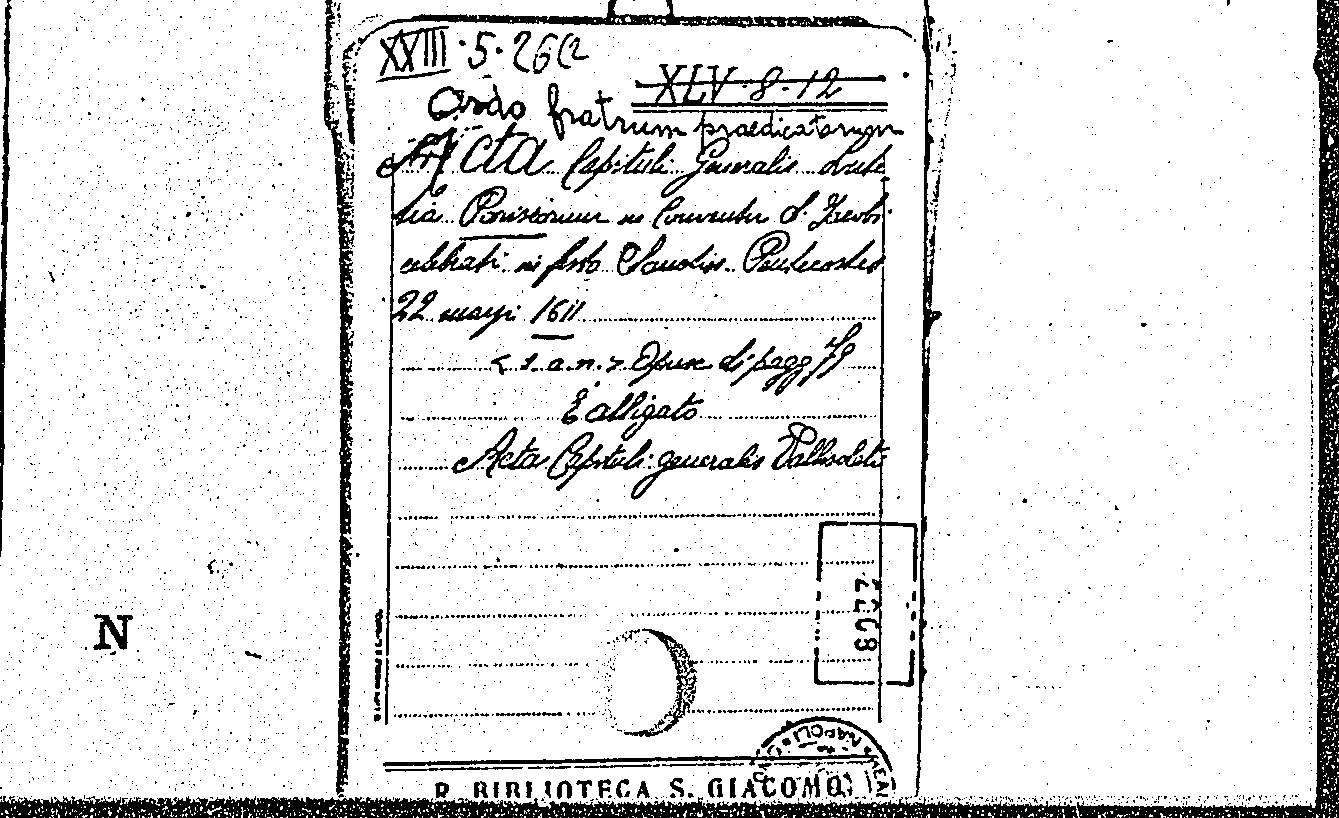 XXVIII.5.26(2
XLV.8.12
Ordo fratrum praedicatorum
Acta Capituli Generalis Lute
tia Parisiorum in Conventu S. Jacobi
celebrati in festo Sanctiss. Pentecostes
22 maji 1611
< s.a.n. > Opusc. di pagg.
È alligato
Acta Capituli generalis Vallisoleti
N
R. BIBLIOTECA S. GIACOMO
NAPOLI